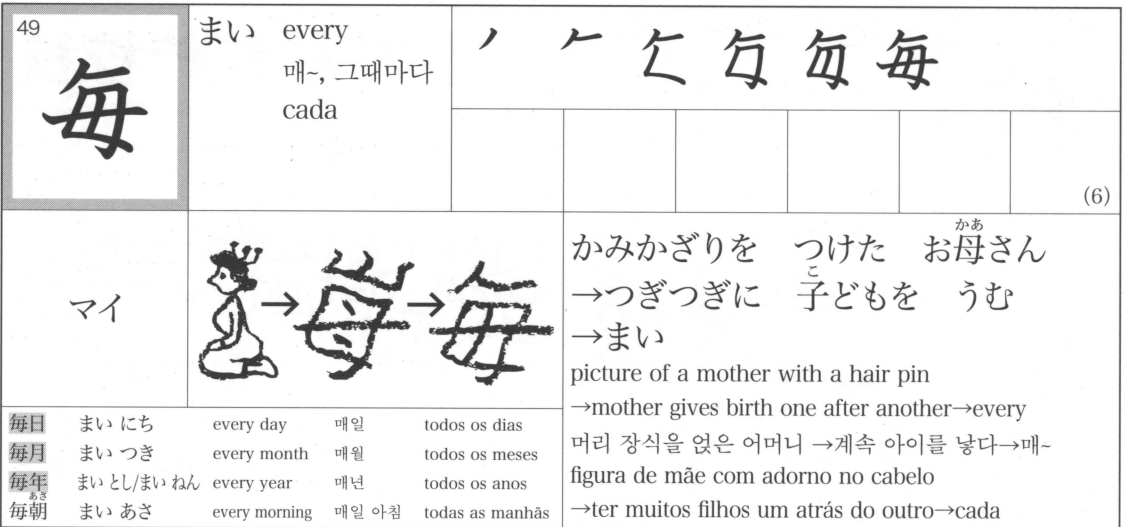 49
毎
まい every
매~, 그때마다
cada
ノ 𠂉 毎
(6)
マイ
→ →
かみかざりを つけた お母さん
かあ
→つぎつぎに 子どもを うむ
こ
→まい
picture of a mother with a hair pin
→mother gives birth one after another→every
머리 장식을 얹은 어머니 →계속 아이를 낳다→매~
figura de mãe com adorno no cabelo
→ter muitos filhos um atrás do outro→cada
毎日 まい にち every day 매일 todos os dias
毎月 まい つき every month 매월 todos os meses
毎年 まい とし/まい ねん every year 매년 todos os anos
あさ
毎朝 まい あさ every morning 매일 아침 todas as manhãs